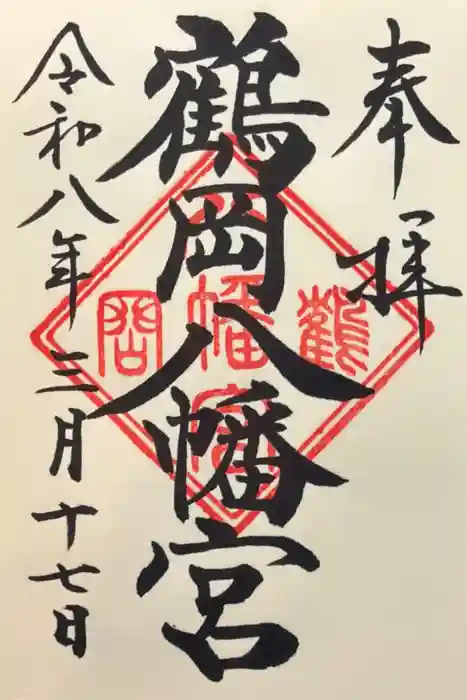 奉拝
鶴岡八幡宮
令和八年三月十七日
鶴岡八幡宮